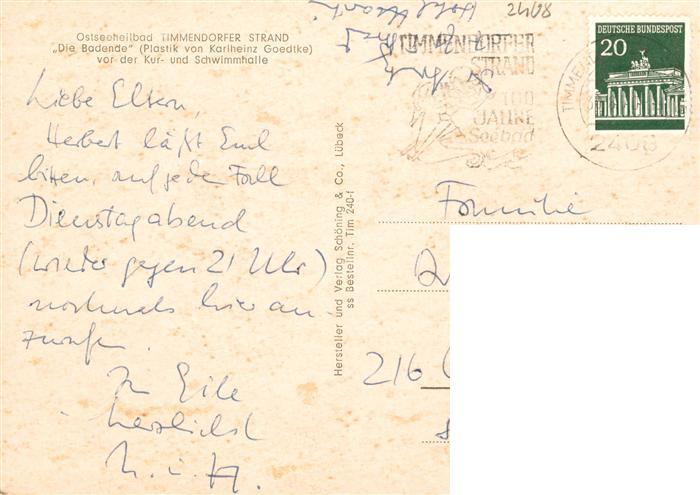 Ostseeheilbad TIMMENDORFER STRAND
„Die Badende“ (Plastik von Karlheinz Goedtke)
vor der Kur- und Schwimmhalle
Liebe Eltern,
Herbert läßt Euch
bitten, auf jeden Fall
Dienstagabend
(wieder gegen 21 Uhr)
nochmals hier an-
zurufen.
In Eile
herzlichst
H. i. H.
Hersteller und Verlag Schöning & Co., Lübeck
ss Bestellnr. Tim 240-f
2408
TIMMENDORFER
STRAND
100
JAHRE
Seebad
TIMMEN
2408
DEUTSCHE BUNDESPOST
20
Familie
216